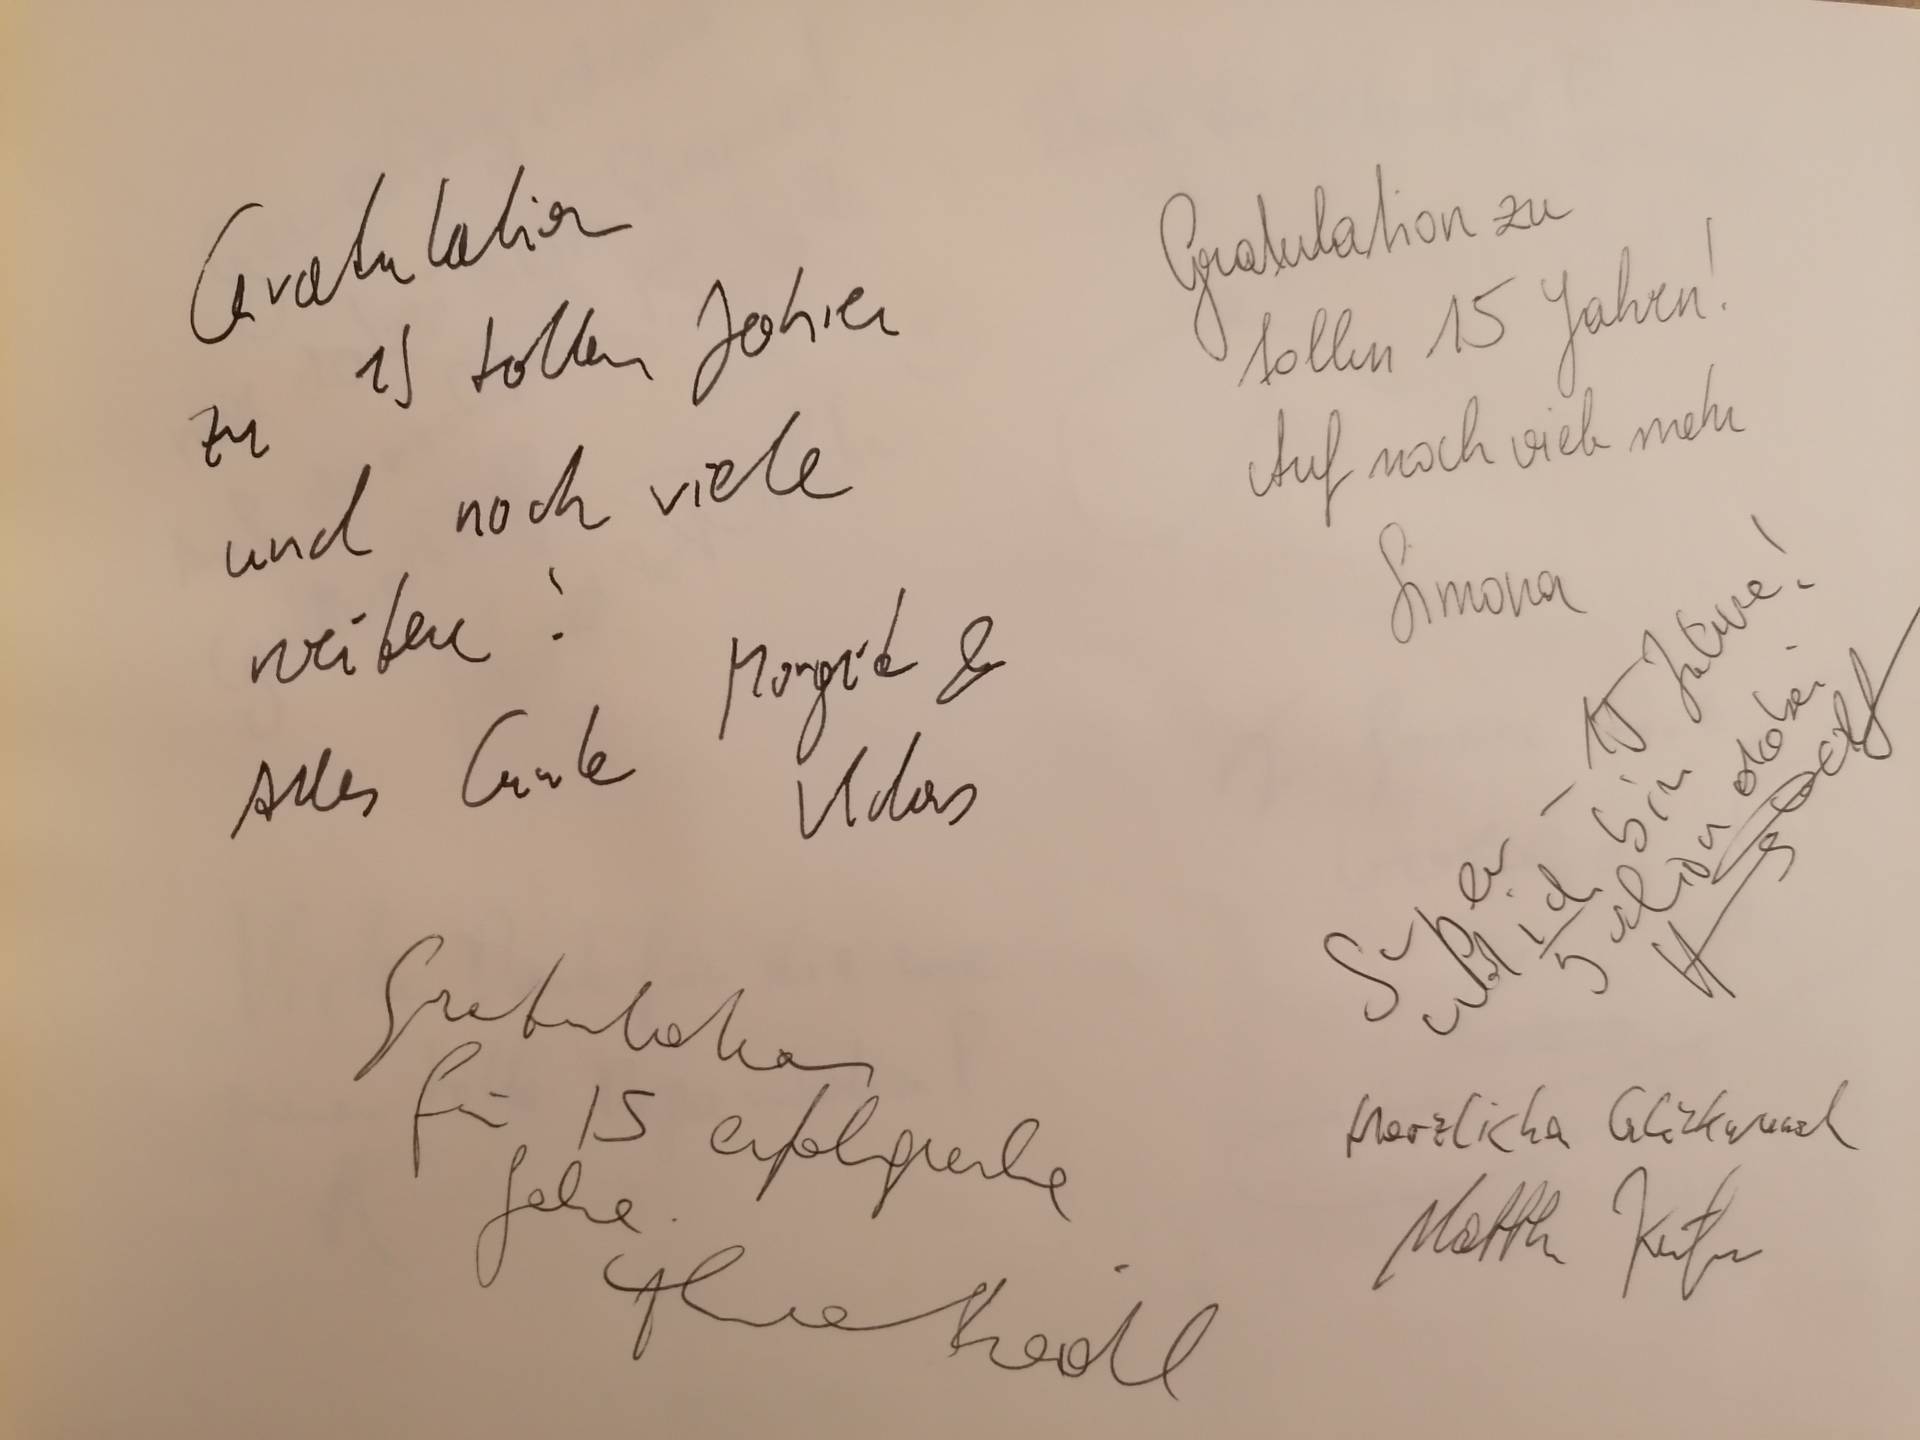 Gratulation
zu 15 tollen Jahren
und noch viele
weitere!
Alles Gute Margit &
Klaus
Gratulation zu
tollen 15 Jahren!
Auf noch viele mehr
Simona
Super - 15 Jahre!
und ich bin
5 schon dabei
Gratulation
für 15 erfolgreiche
Jahre.
Herzlichen Glückwunsch